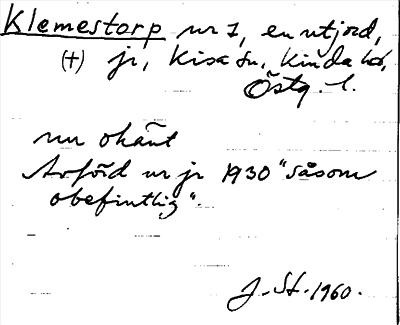 Klemestorp nr 1, en utjord,
(+) jr, Kisa sn, Kinda hd,
Östg. l.
nu okänt
Avförd ur jr 1930 "såsom
obefintlig".
J. St. 1960.